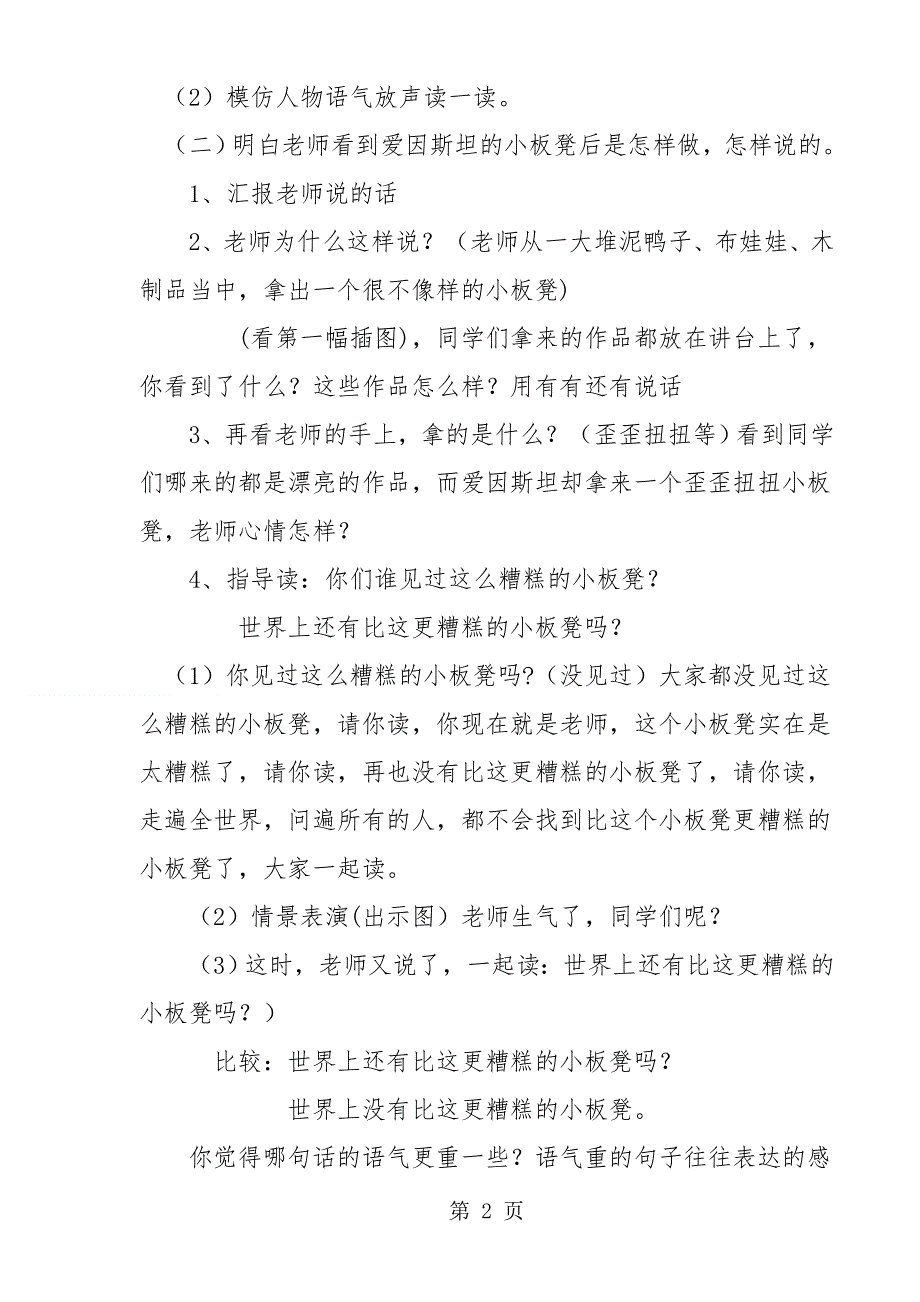 （2）模仿人物语气放声读一读。
（二）明白老师看到爱因斯坦的小板凳后是怎样做，怎样说的。
1、汇报老师说的话
2、老师为什么这样说？（老师从一大堆泥鸭子、布娃娃、木
制品当中，拿出一个很不像样的小板凳)
(看第一幅插图)，同学们拿来的作品都放在讲台上了，
你看到了什么？这些作品怎么样？用有有还有说话
3、再看老师的手上，拿的是什么？（歪歪扭扭等）看到同学
们哪来的都是漂亮的作品，而爱因斯坦却拿来一个歪歪扭扭小板
凳，老师心情怎样？
4、指导读：你们谁见过这么糟糕的小板凳？
世界上还有比这更糟糕的小板凳吗？
（1）你见过这么糟糕的小板凳吗?（没见过）大家都没见过这
么糟糕的小板凳，请你读，你现在就是老师，这个小板凳实在是
太糟糕了，请你读，再也没有比这更糟糕的小板凳了，请你读，
走遍全世界，问遍所有的人，都不会找到比这个小板凳更糟糕的
小板凳了，大家一起读。
（2）情景表演(出示图）老师生气了，同学们呢？
（3）这时，老师又说了，一起读：世界上还有比这更糟糕的
小板凳吗？）
比较：世界上还有比这更糟糕的小板凳吗？
世界上没有比这更糟糕的小板凳。
你觉得哪句话的语气更重一些？语气重的句子往往表达的感
第 2 页